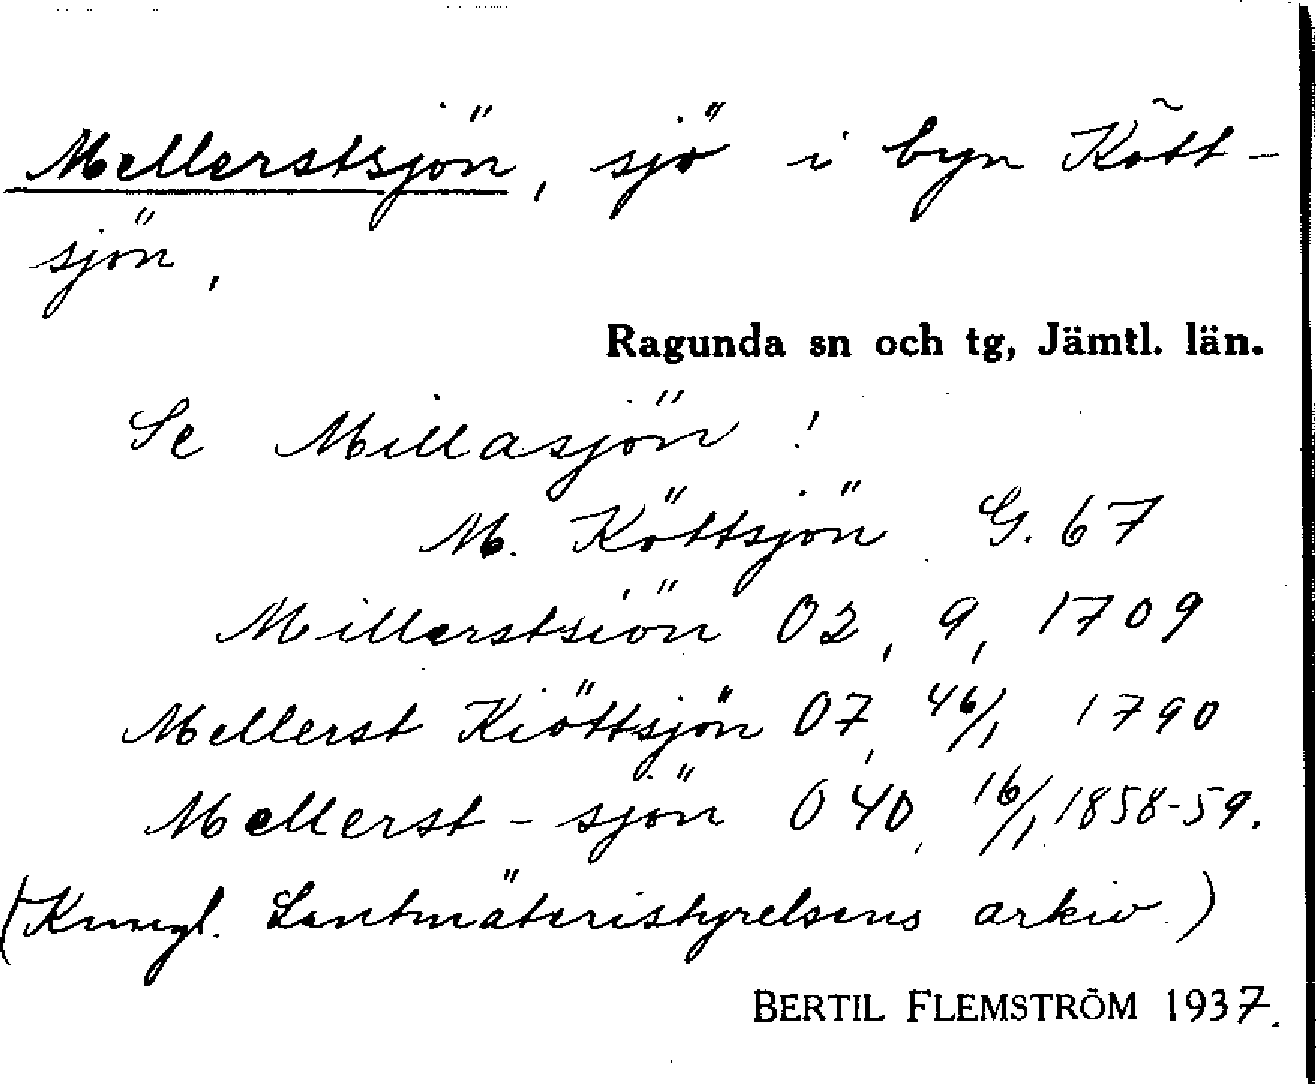 Mellerstsjön, sjö i byn Kött-
sjön,
Ragunda sn och tg, Jämtl. län.
Se Millasjön!
M. Köttsjön G. 67
Millerstsiön O2, 9, 1709
Mellerst Kiöttsjön O7, 46/1 1790
Mellerst-sjön O40, 16/1, 1858-59.
(Kungl. Lantmäteristyrelsens arkiv.)
BERTIL FLEMSTRÖM 1937.